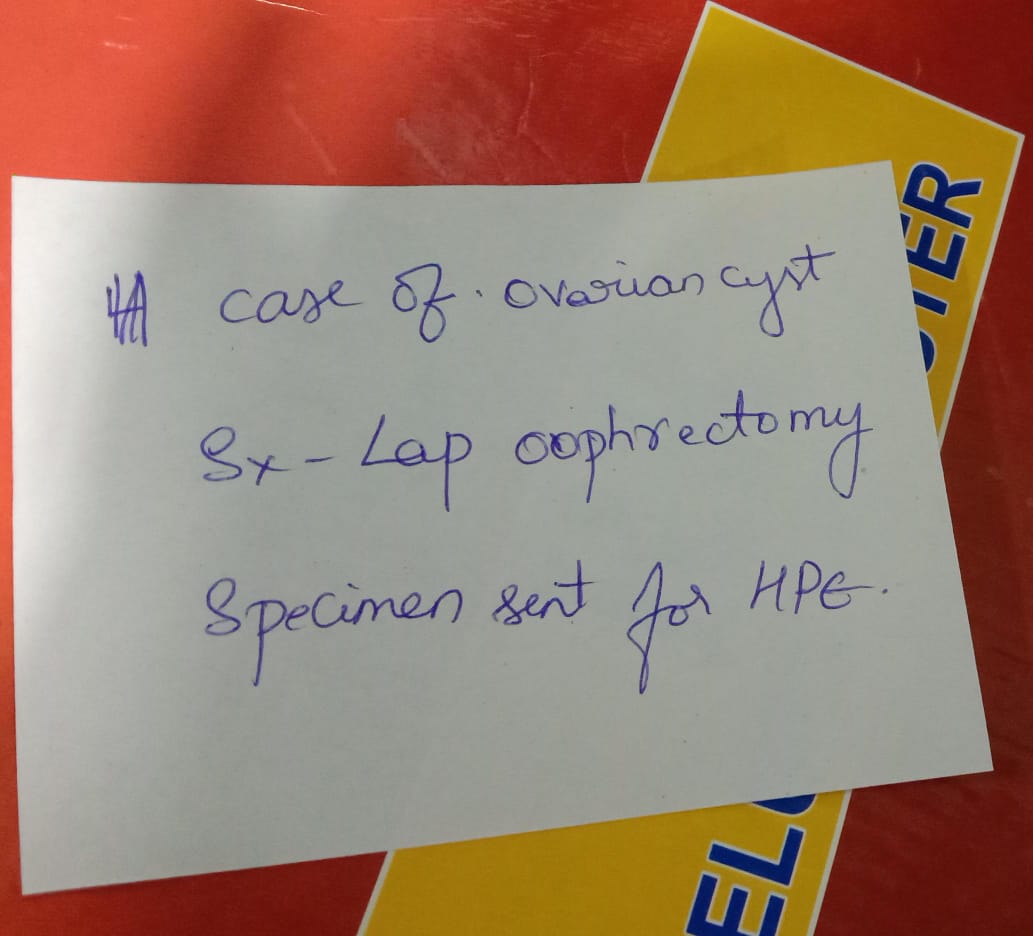 A case of. ovarian cyst
Sx - Lap oophrectomy
Specimen sent for HPE.